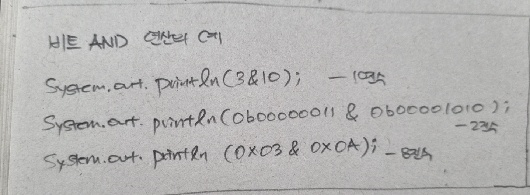 비트 AND 연산의 예
System.out.println(3&10); — 10진수
System.out.println(0b00000011 & 0b00001010);
— 2진수
System.out.println (0x03 & 0x0A); — 8진수